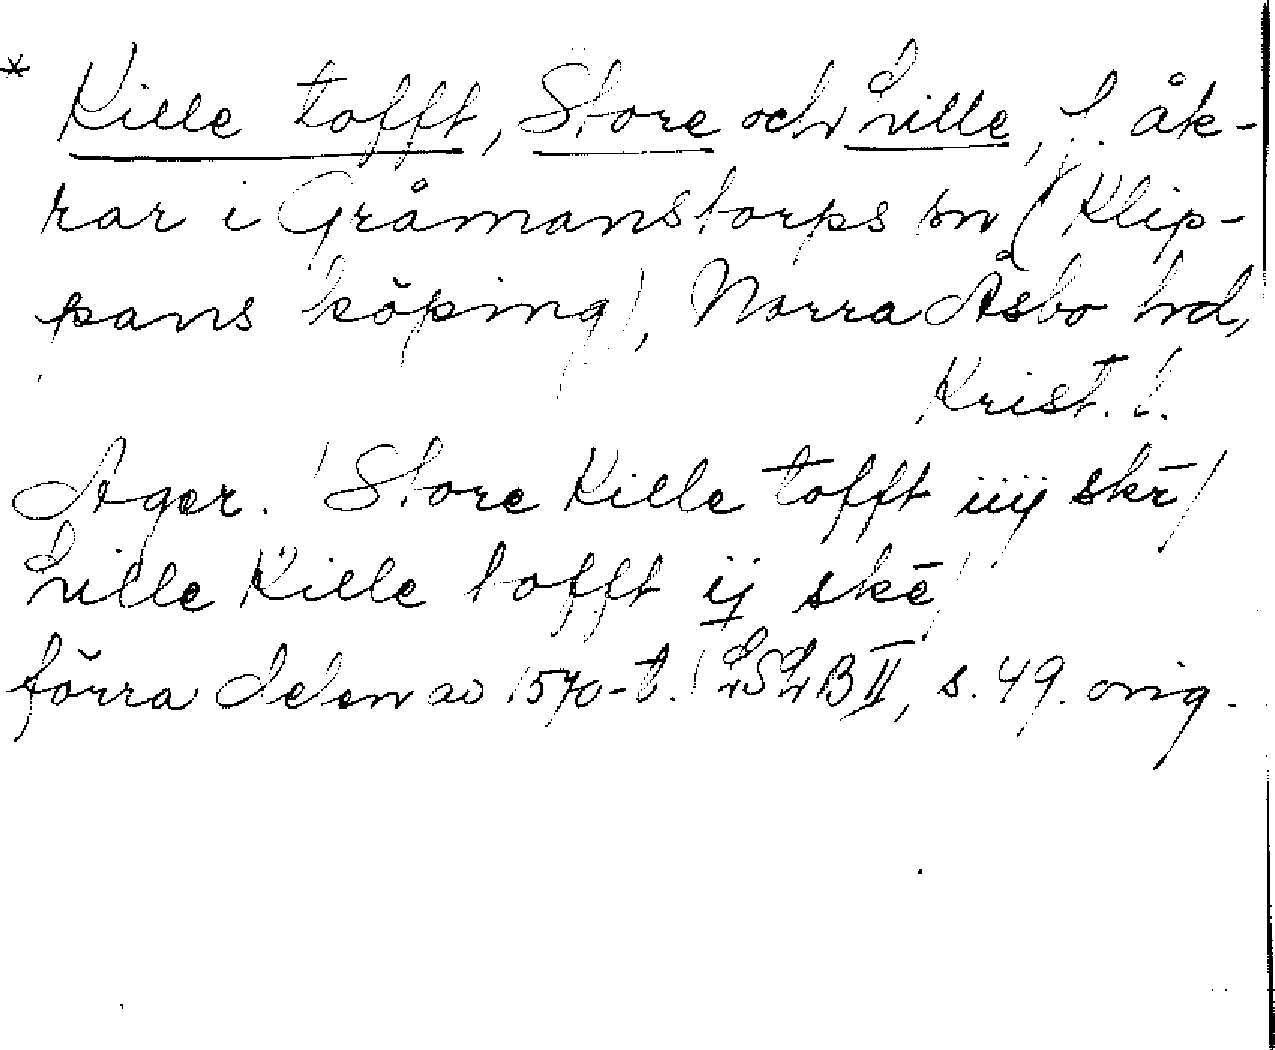 * Kille tofft, Store och Lille, f. åk-
rar i Gråmanstorps sn (Klip-
pans köping), Norra Åsbo hd,
Krist. l.
Ager. / Store Kille tofft iiij skē /
Lille Kille tofft ij skē /
förra delen av 1570-t. LSLB II, s. 49. orig.